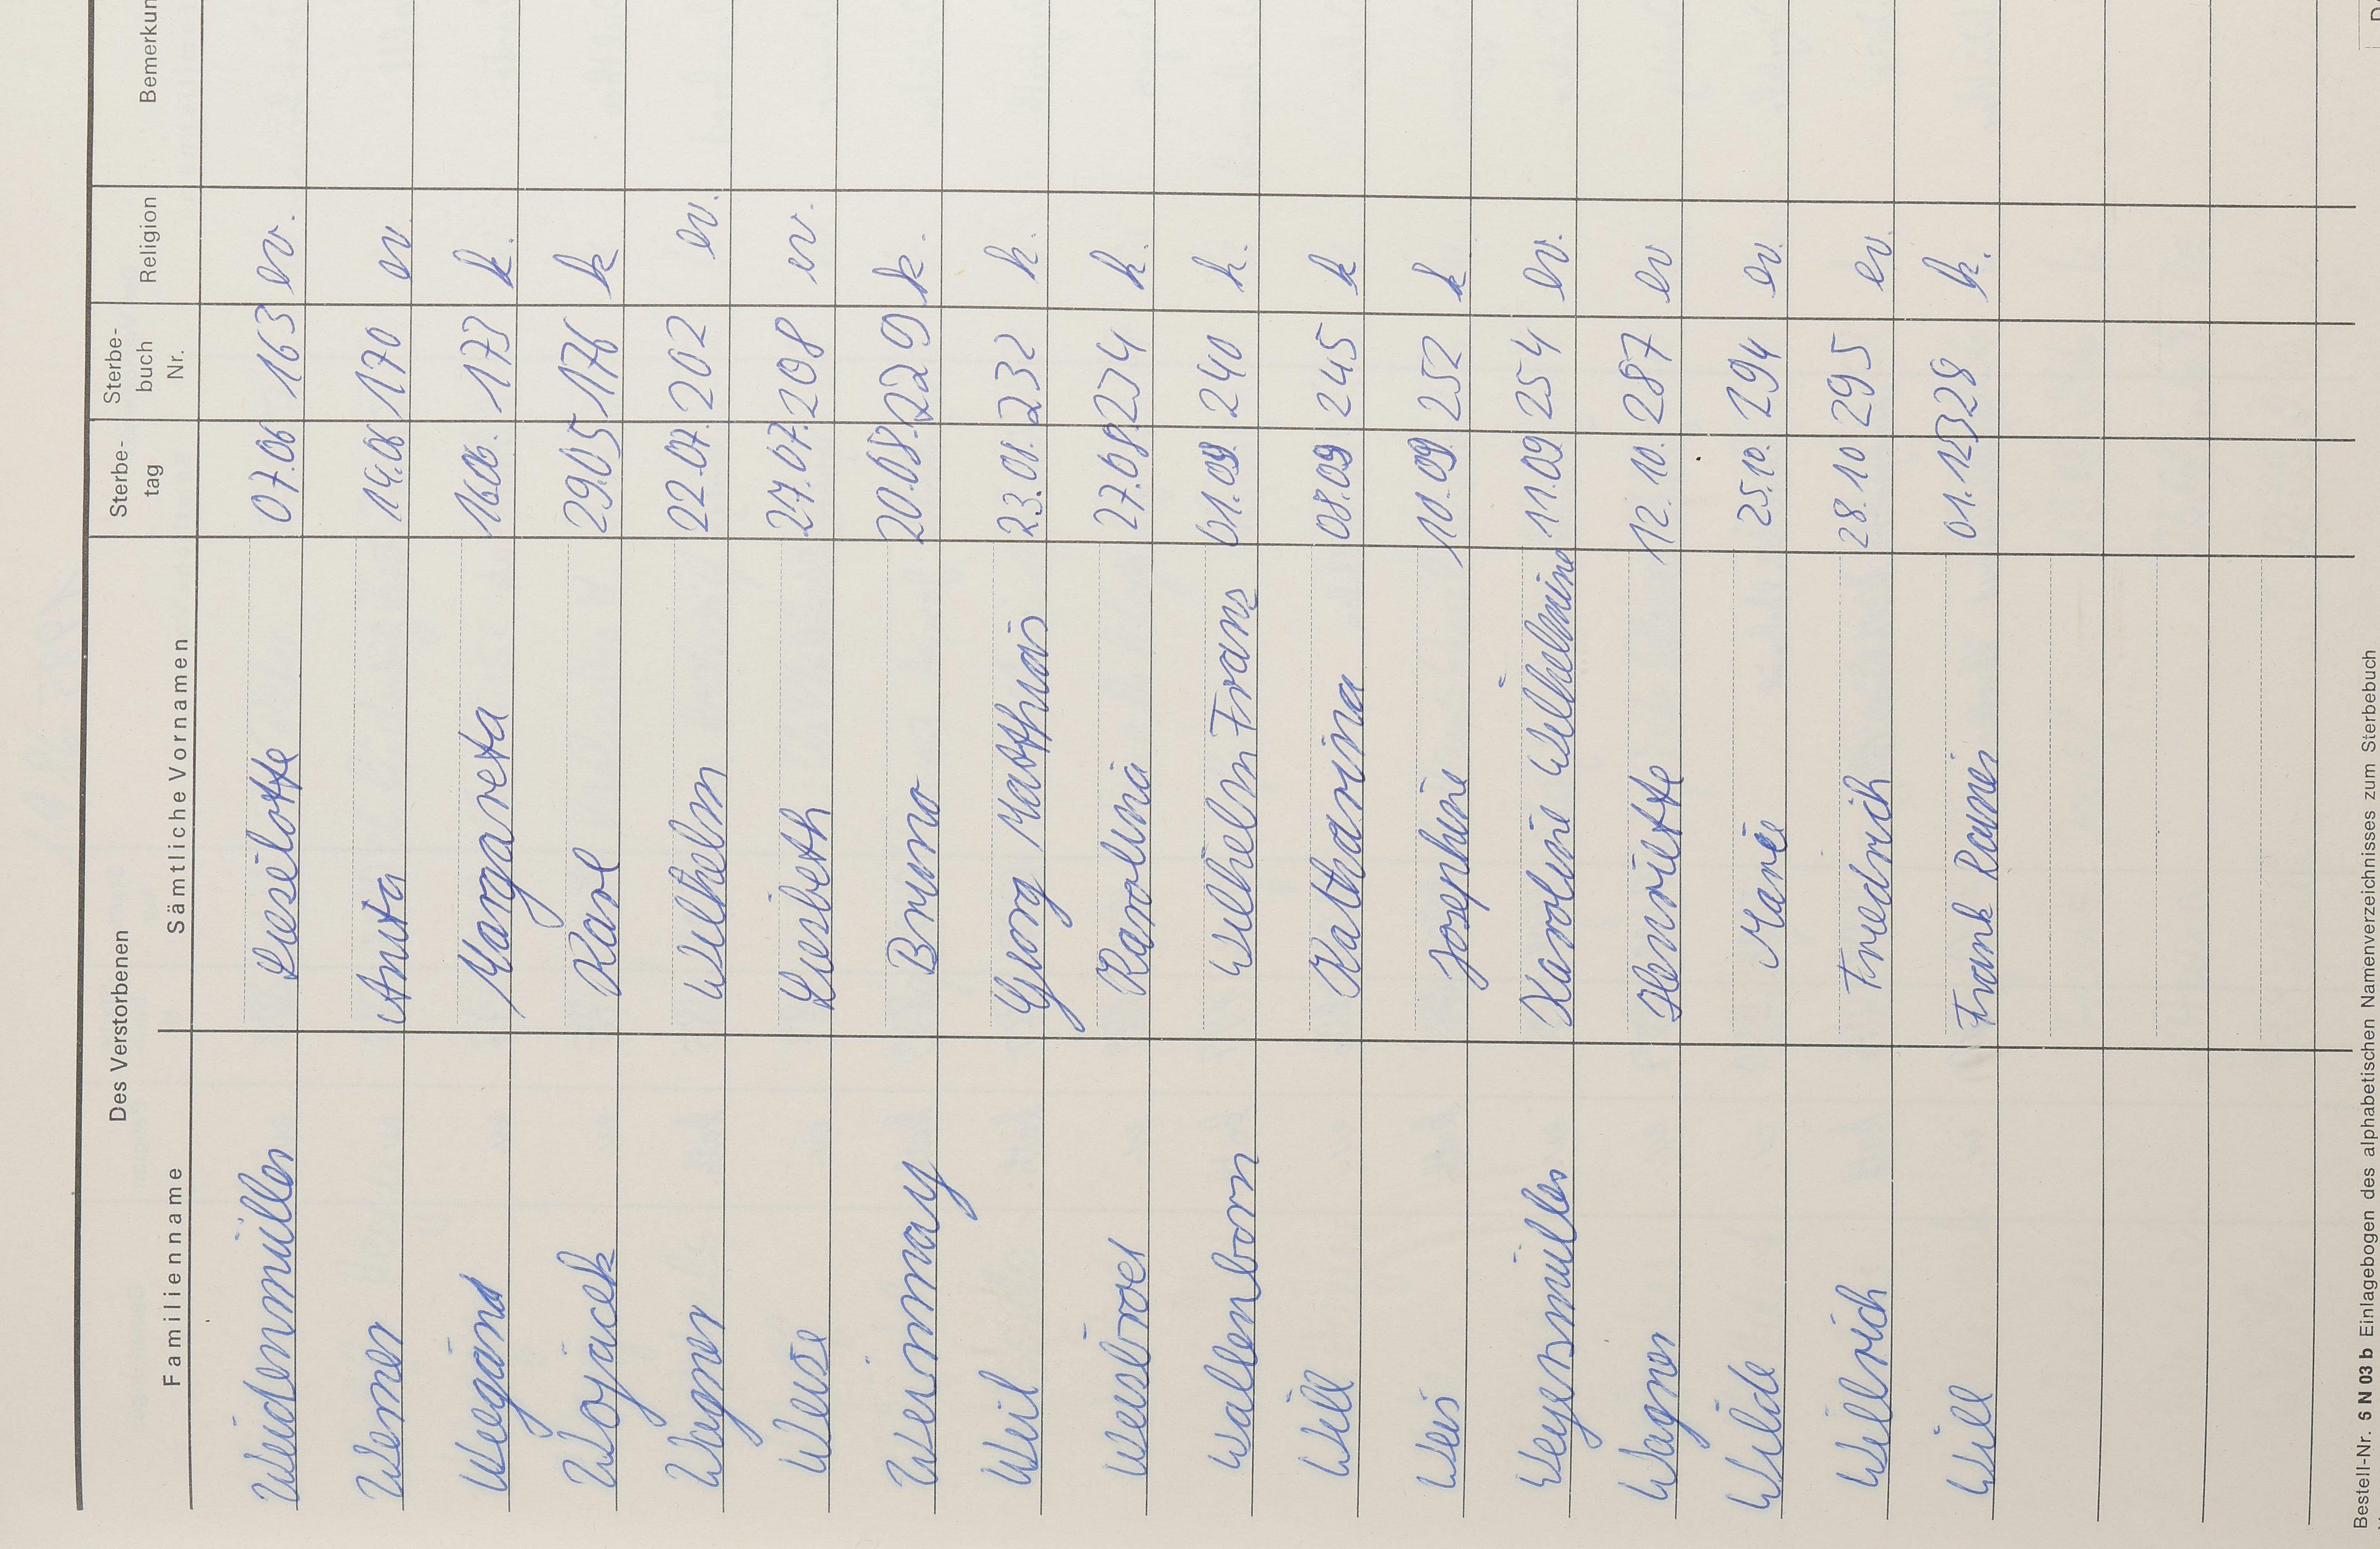 Des Verstorbenen
Familienname Sämtliche Vornamen Sterbe-tag Sterbe-buch Nr. Religion Bemerkun
Weidenmüller Lieselotte 07.06 163 ev.
Werner Anita 14.06 170 ev
Wiegand Margareta 16.06. 173 k.
Wojacek Karl 29.05 176 k
Wagner Wilhelm 22.07. 202 ev.
Weise Liesbeth 27.07. 208 ev.
Weinmay Bruno 20.08. 229 k.
Weil Georg Matthias 23.08. 232 k.
Weisbrod Karolina 27.08 234 k.
Wallenborn Wilhelm Franz 01.09. 240 k.
Will Katharina 08.09 245 k
Weis Josephine 10.09. 252 k
Weyersmüller Karoline Wilhelmine 11.09 254 ev.
Wagner Henriette 12.10. 287 ev
Wilde Marie 25.10. 294 ev.
Willrich Friedrich 28.10 295 ev.
Will Frank Rainer 01.12 328 k.
Bestell-Nr. 5 N 03 b Einlagebogen des alphabetischen Namenverzeichnisses zum Sterbebuch